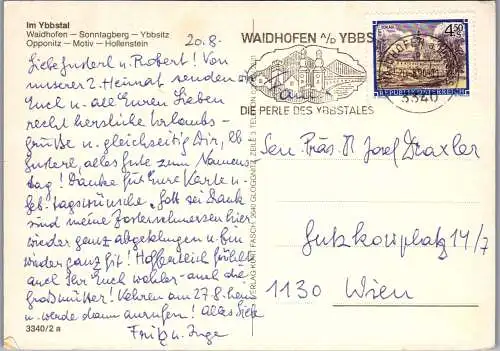 Im Ybbstal
Waidhofen – Sonntagberg – Ybbsitz
Opponitz – Motiv – Hollenstein
20.8.
Liebe Gusterl u. Robert! Von
unserer 2. Heimat senden wir
Euch u. all Euren Lieben
recht herzliche Urlaubs-
grüße u. gleichzeitig Dir, lb.
Gusterl, alles Gute zum Namens-
tag! Danke für Eure Karte u.
Geb. tagswünsche. Gott sei Dank
sind meine Zosterschmerzen hier
wieder ganz abgeklungen u. bin
wieder ganz fit! Hoffentlich fühlt
auch Ihr Euch wohler – auch die
Großmutter! Kehren am 27.8. heim
u. werde dann anrufen! Alles Liebe
Fritz u. Inge
3340/2 a
WAIDHOFEN A/D YBBS
DIE PERLE DES YBBSTALES
4.50
REPUBLIK ÖSTERREICH
3340
VERLAG KURT FASCH, 2640 GLOGGNITZ
Sen. Präs. Josef Draxler
Gutzkowplatz 14/7
1130 Wien